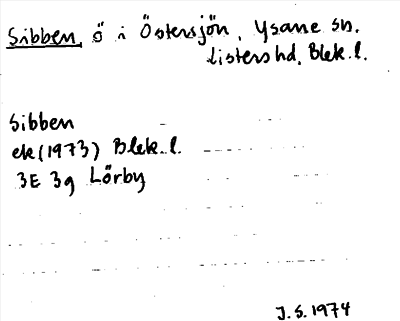 Sibben, ö i Östersjön, Ysane sn.
Listers hd, Blek. l.
Sibben
ek (1973) Blek. l.
3E 3g Lörby
J. S. 1974